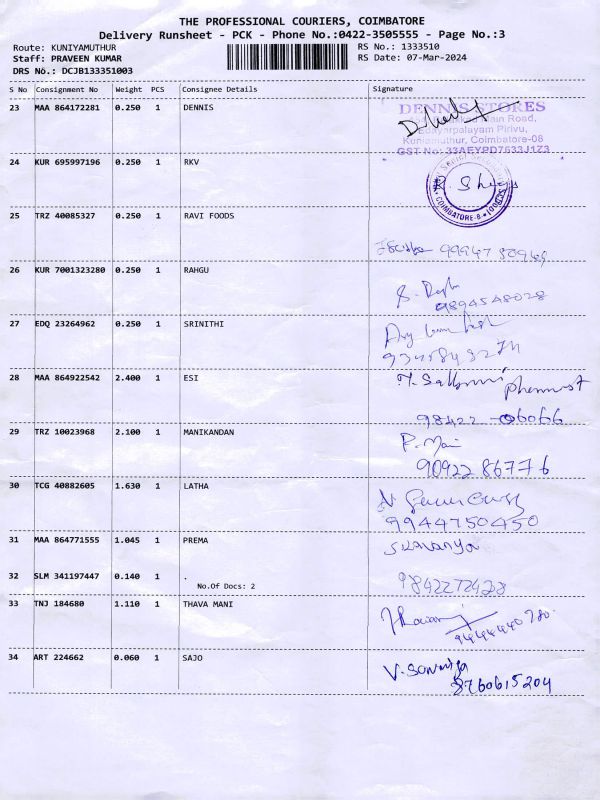 THE PROFESSIONAL COURIERS, COIMBATORE
Delivery Runsheet - PCK - Phone No.:0422-3505555 - Page No.:3
Route: KUNIYAMUTHUR
RS No.: 1333510
Staff: PRAVEEN KUMAR
RS Date: 07-Mar-2024
DRS No.: DCJB133351003
S No Consignment No Weight PCS Consignee Details Signature
23 MAA 864172281 0.250 1 DENNIS
DENNIS STORES
Main Road,
Edayarpalayam Pirivu,
Kuniamuthur, Coimbatore-08
GST No: 33AEYPD7633J1Z3
24 KUR 695997196 0.250 1 RKV
COIMBATORE-8
25 TRZ 40085327 0.250 1 RAVI FOODS
26 KUR 7001323280 0.250 1 RAHGU
9894548028
27 EDQ 23264962 0.250 1 SRINITHI
28 MAA 864922542 2.400 1 ESI
Pharmist
98422 06066
29 TRZ 10023968 2.100 1 MANIKANDAN
P. Mani
90922 86776
30 TCG 40882605 1.630 1 LATHA
9944750450
31 MAA 864771555 1.045 1 PREMA
32 SLM 341197447 0.140 1 .
No.Of Docs: 2
33 TNJ 184680 1.110 1 THAVA MANI
34 ART 224662 0.060 1 SAJO
8760615204